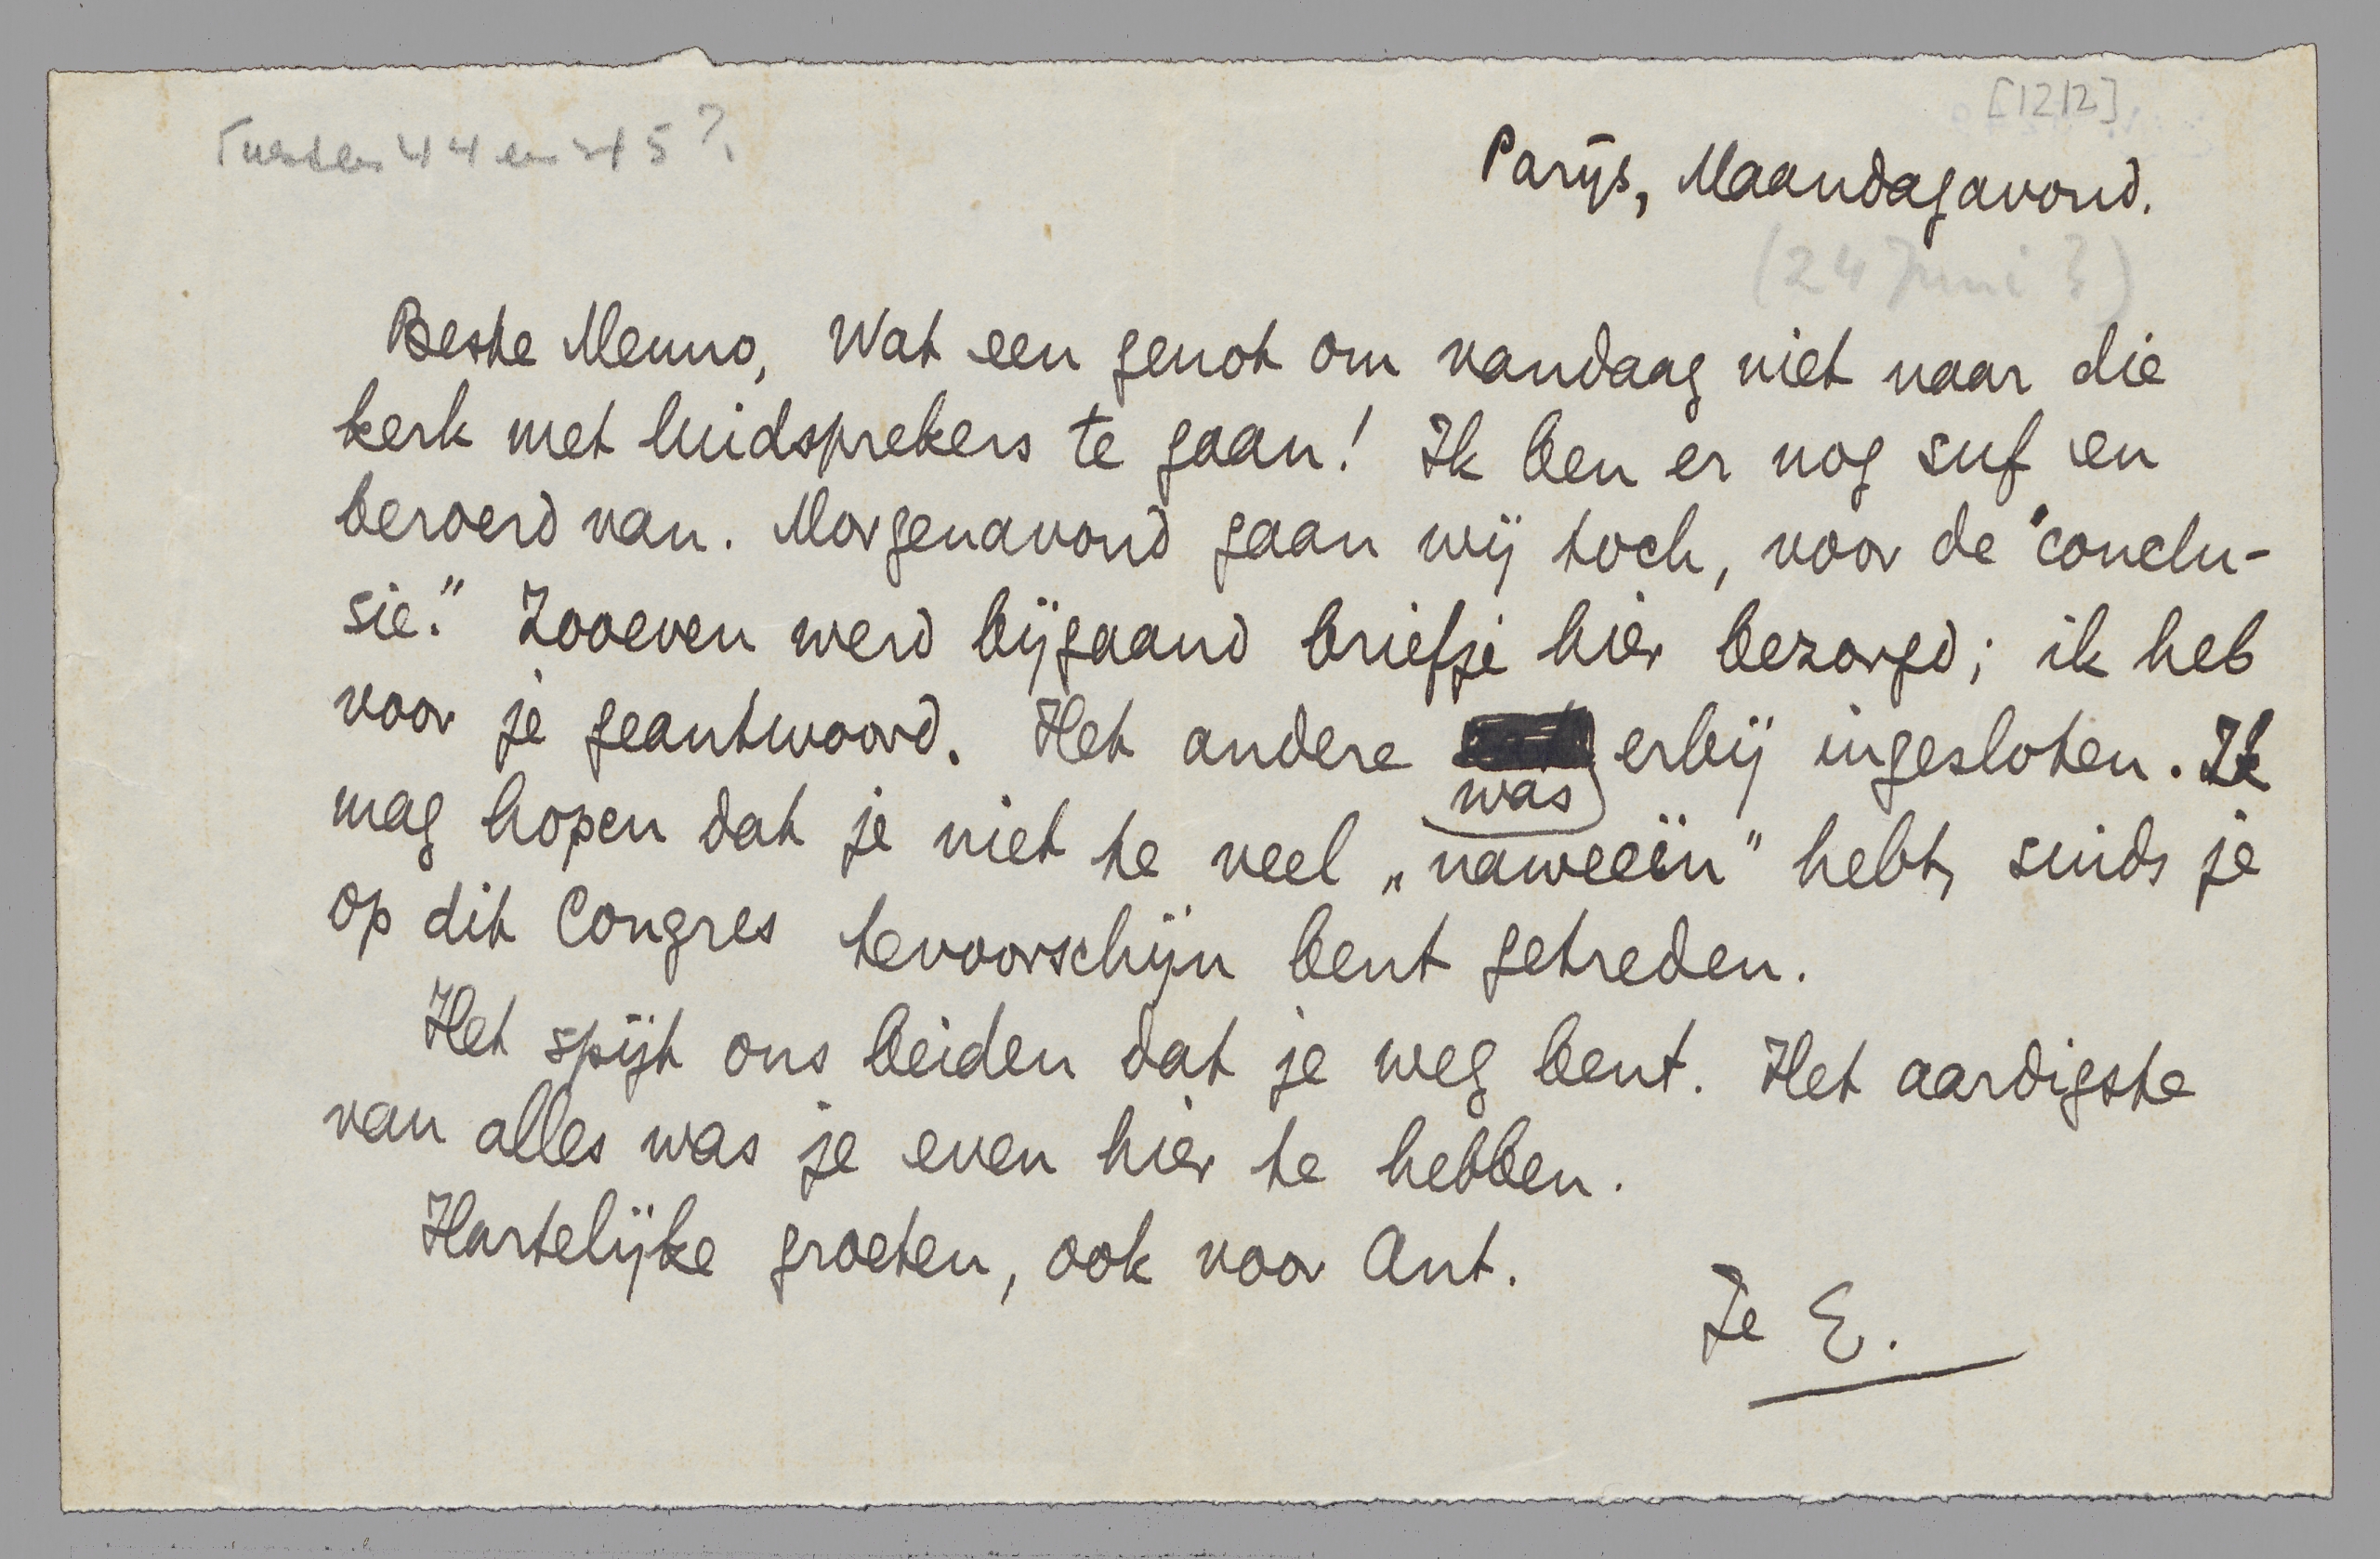 [1212]
Tussen 44 en 45?
Parijs, Maandagavond.
(24 Juni?)
Beste Menno, Wat een genot om vandaag niet naar die
kerk met luidsprekers te gaan! Ik ben er nog suf en
beroerd van. Morgenavond gaan wij toch, voor de "conclu-
sie." Zooeven werd bijgaand briefje hier bezorgd; ik heb
voor je geantwoord. Het andere was erbij ingesloten. Ik
mag hopen dat je niet te veel „naweeën" hebt, sinds je
op dit Congres tevoorschijn bent getreden.
Het spijt ons beiden dat je weg bent. Het aardigste
van alles was je even hier te hebben.
Hartelijke groeten, ook voor Ant.
Je E.